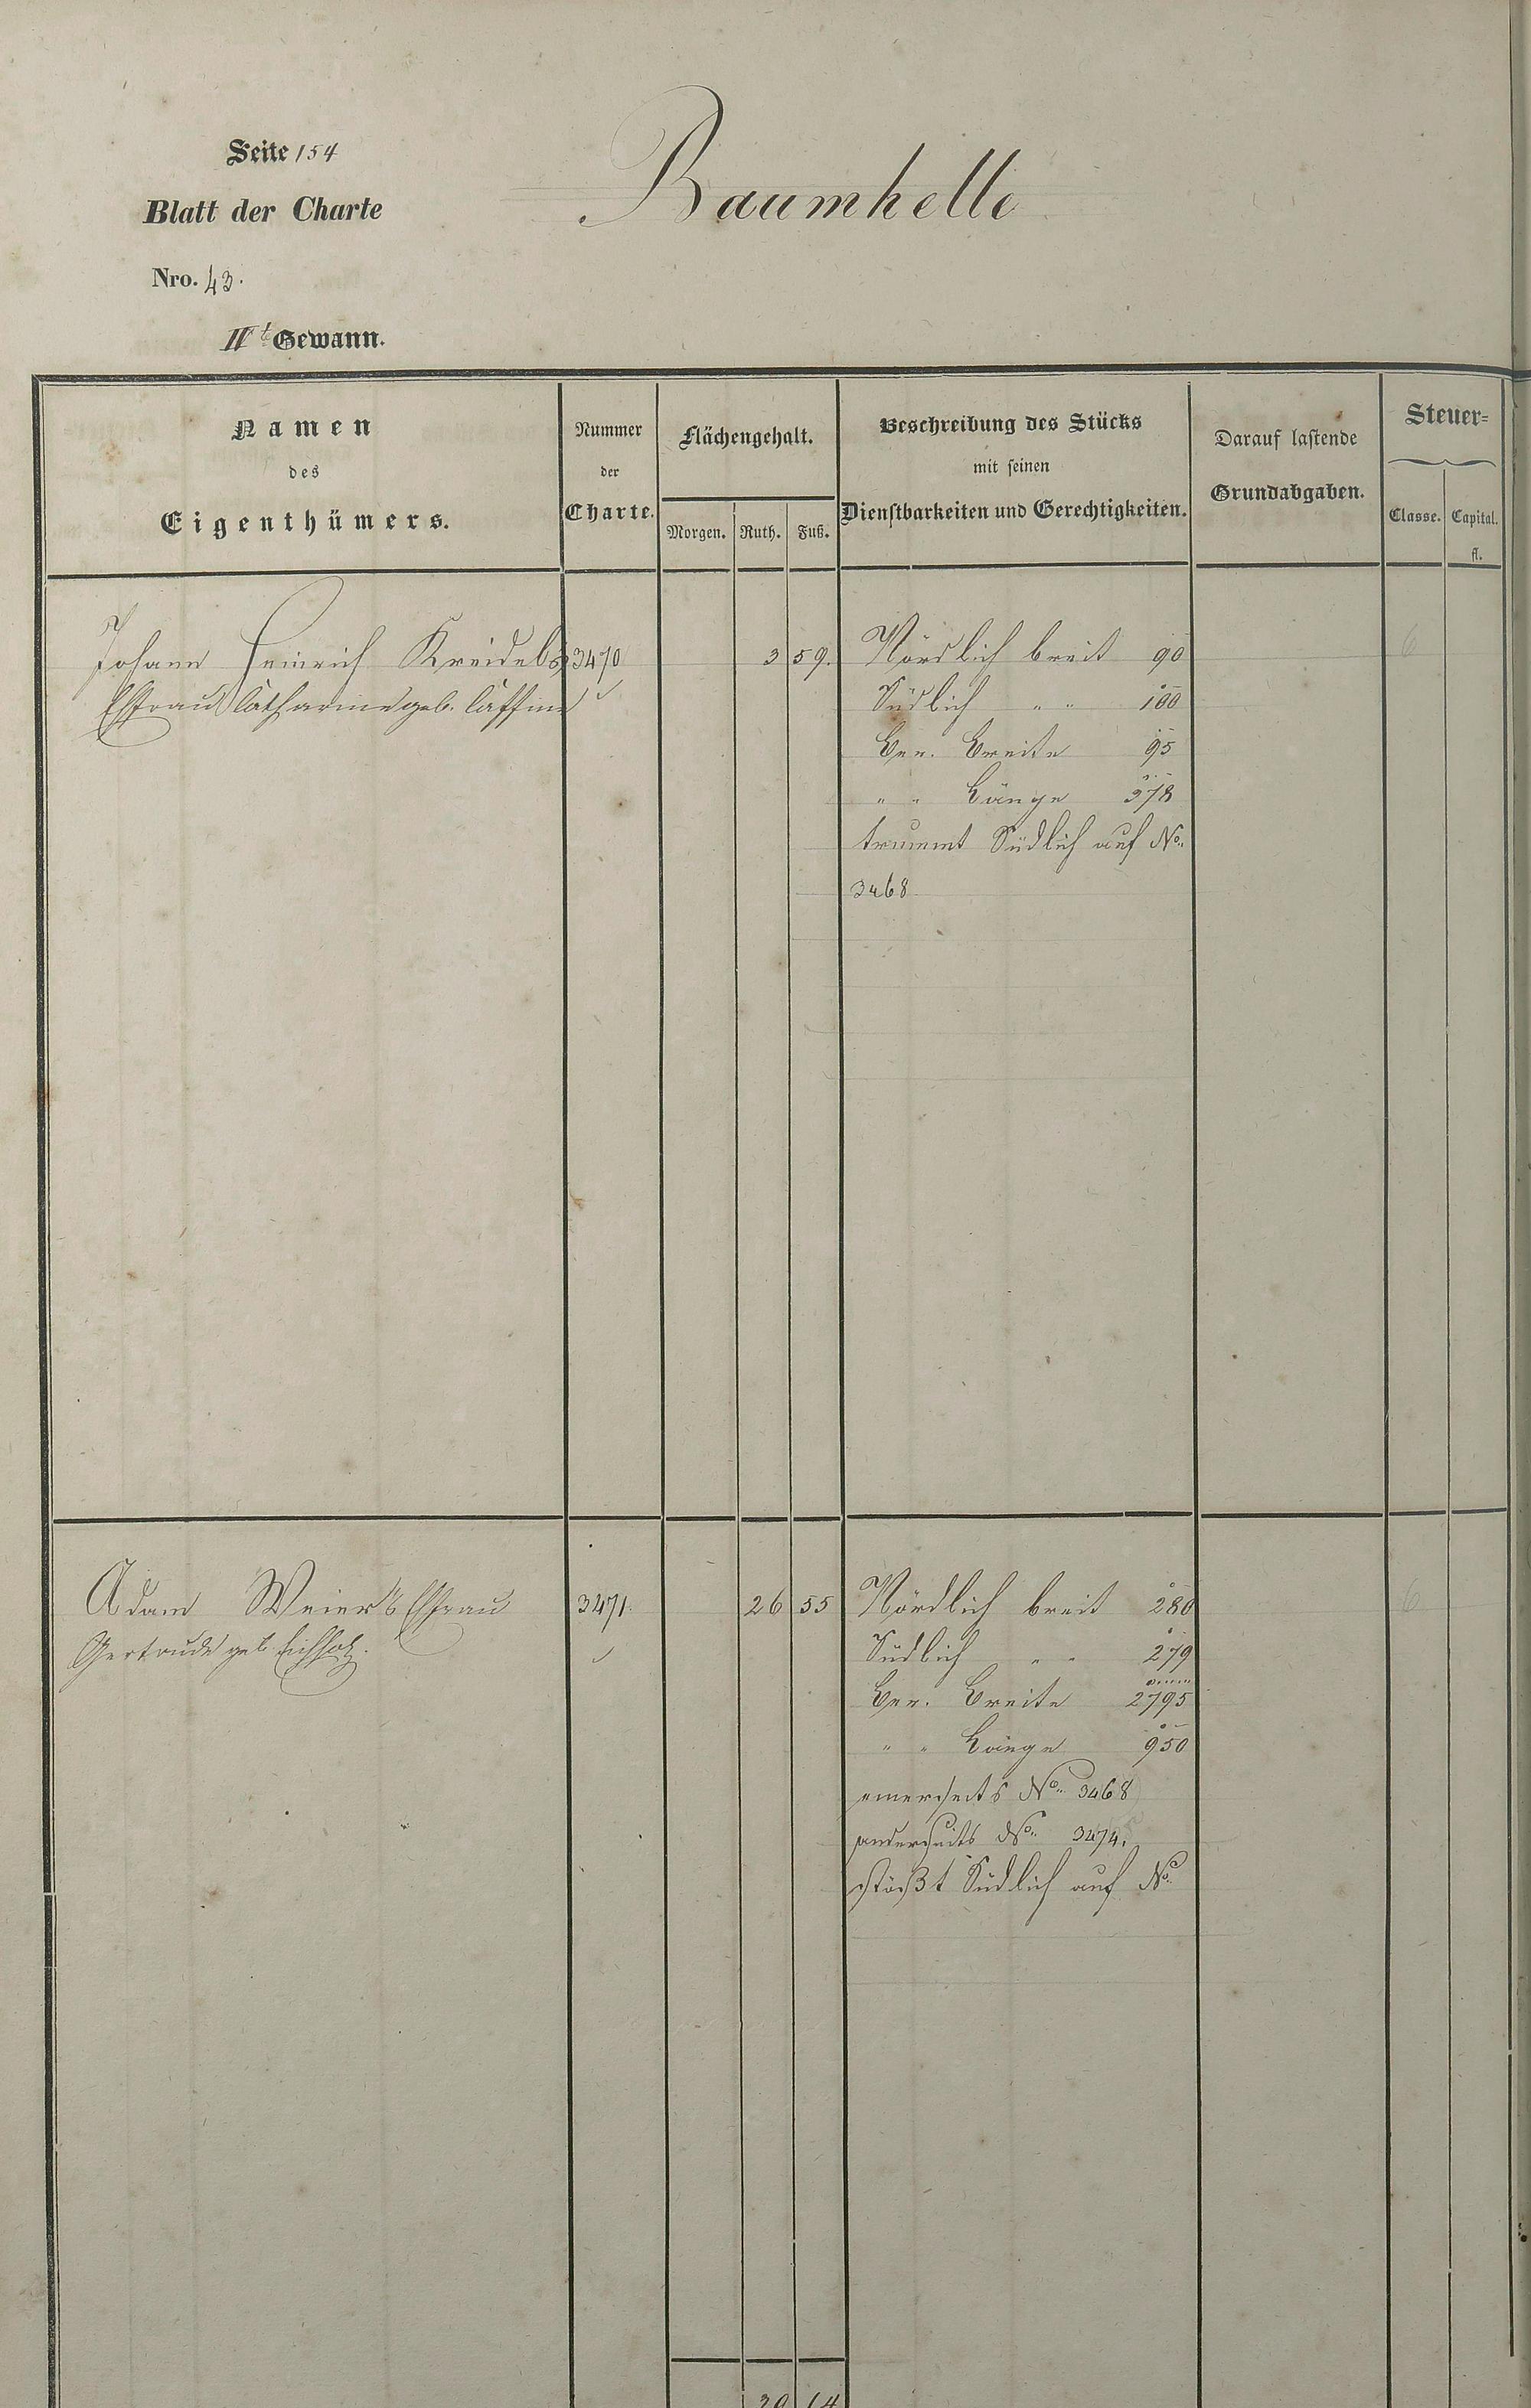 Seite 154
Blatt der Charte
Nro. 43.
IIte Gewann.
Baumhelle
Namen
des
Eigenthümers.
Nummer
der
Charte.
Flächengehalt.
Morgen. Ruth. Fuß.
Beschreibung des Stücks
mit seinen
Dienstbarkeiten und Gerechtigkeiten.
Darauf lastende
Grundabgaben.
Steuer=
Classe. Capital.
fl.
Johann Heinrich Kreidels 3470 3 59. Nördlich breit 90 6
Ehfrau Catharine geb. Südlich " " 100
Ber. Breite 95
" " Länge 378
trummt Südlich auf No.
3468
Adam Weier's Ehfrau 3471. 26 55 Nördlich breit 280 6
Gertrude geb. Eichholz. Südlich " " 279
Ber. Breite 2795
" " Länge 950
einerseits No. 3468
anderseits No. 3474.
stößt Südlich auf No.
30 14